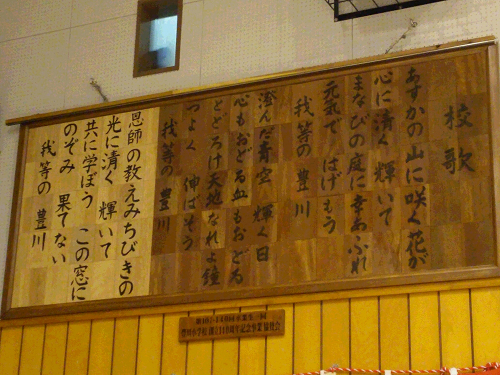 校歌
あすかの山に咲く花が
心に清く輝いて
まなびの庭に幸あふれ
元気で はげもう
我等の豊川
澄んだ青空 輝く日
心もおどる血もおどる
とどろけ天地なれよ鐘
つよく 伸ばそう
我等の豊川
恩師の教えみちびきの
光に清く 輝いて
共に学ぼう この窓に
のぞみ 果てない
我等の 豊川